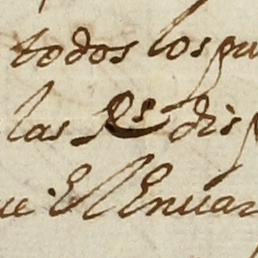 todos los pu
las Rs dis
ue El Enuar